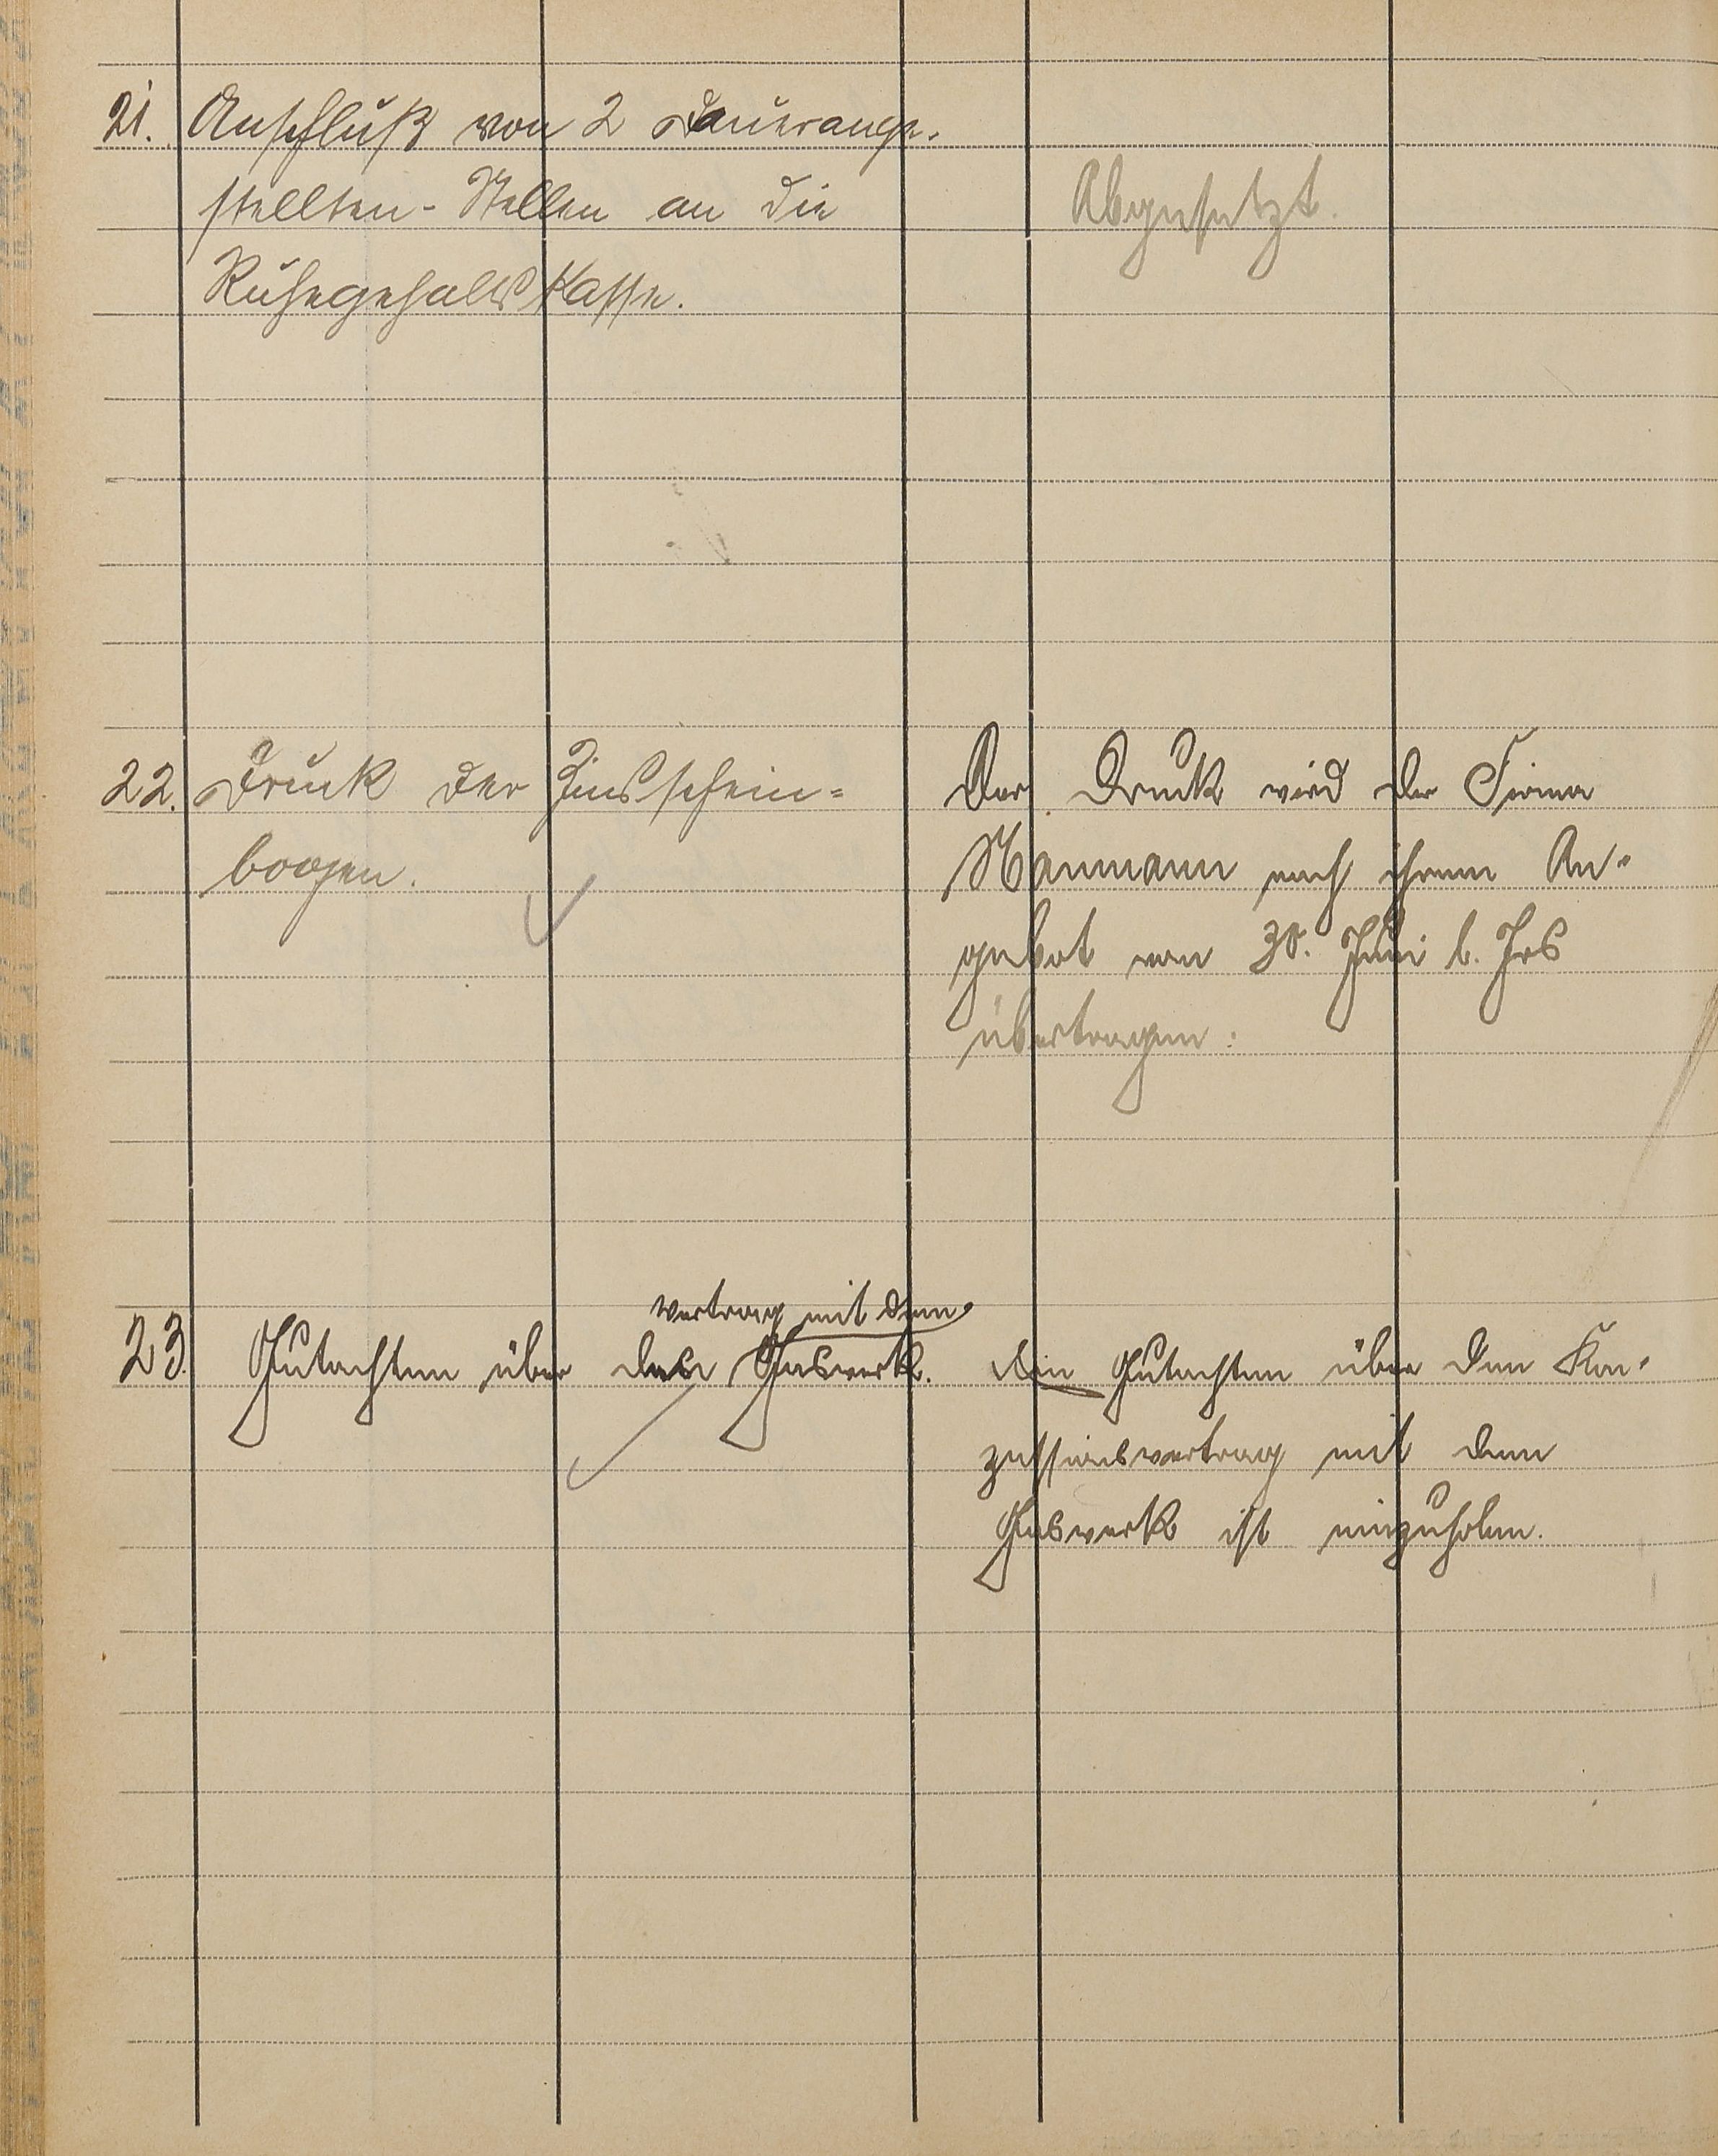 21. Anschluß von 2 Dauerange-
stellten-Stellen an die
Ruhegehaltskasse.
Abgesetzt.
22. Druck der Zinsschein-
boogen.
Der Druck wird der Firma
Naumann nach ihrem An-
gebot von 30. Juni l. Jrs
übertragen.
Vertrag mit dem
23. Gutachten über den Gaswerk.
Ein Gutachten über den Kon-
zessionsvertrag mit dem
Gaswerk ist einzuholen.